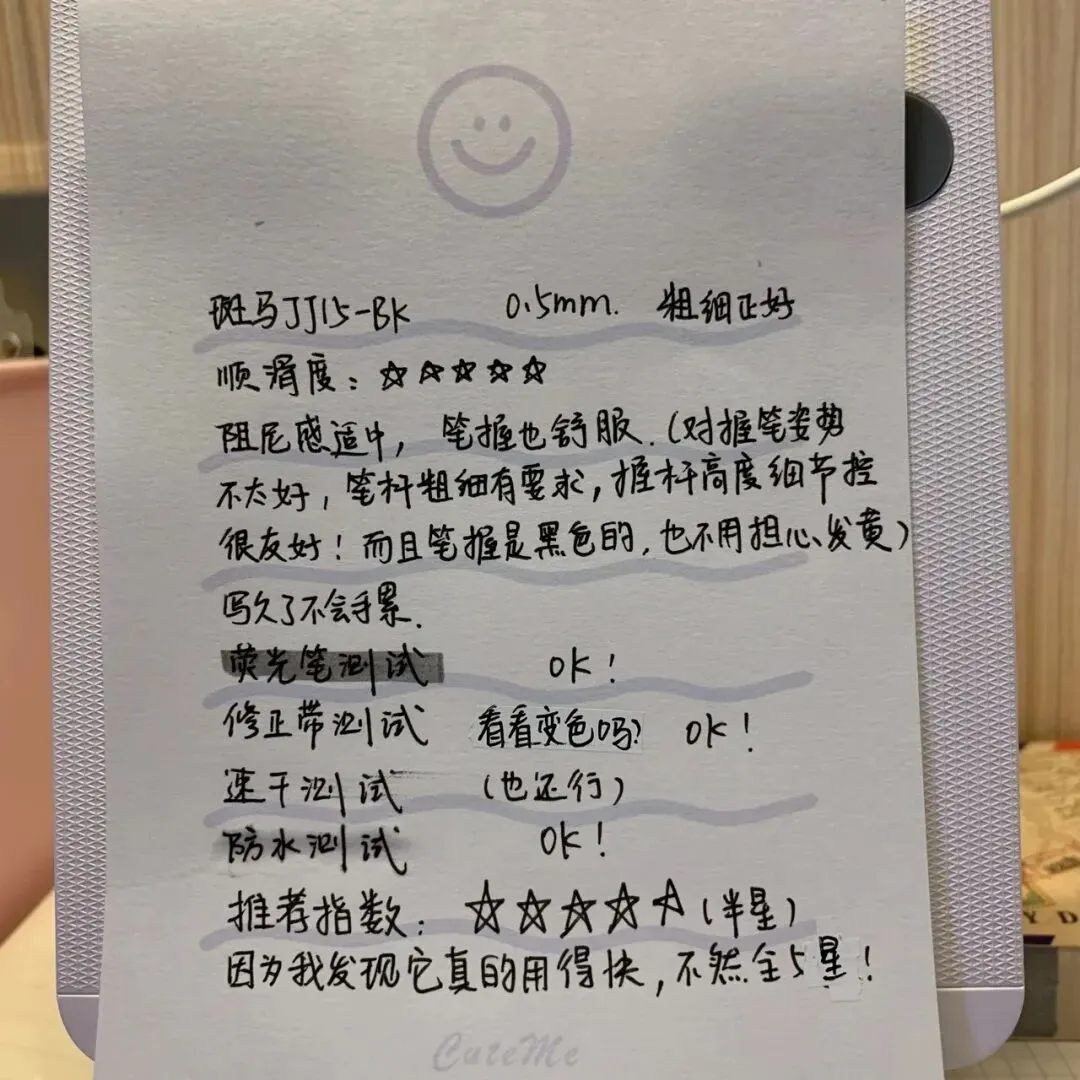 斑马JJ15-BK 0.5mm. 粗细正好
顺滑度：☆☆☆☆☆
阻尼感适中，笔握也舒服.（对握笔姿势
不太好，笔杆粗细有要求，握杆高度细节控
很友好！而且笔握是黑色的，也不用担心发黄）
写久了不会手累.
荧光笔测试 OK！
修正带测试 看看变色吗？ OK！
速干测试 （也还行）
防水测试 OK！
推荐指数：☆☆☆☆☆（半星）
因为我发现它真的用得快，不然全5星！
CuteMe